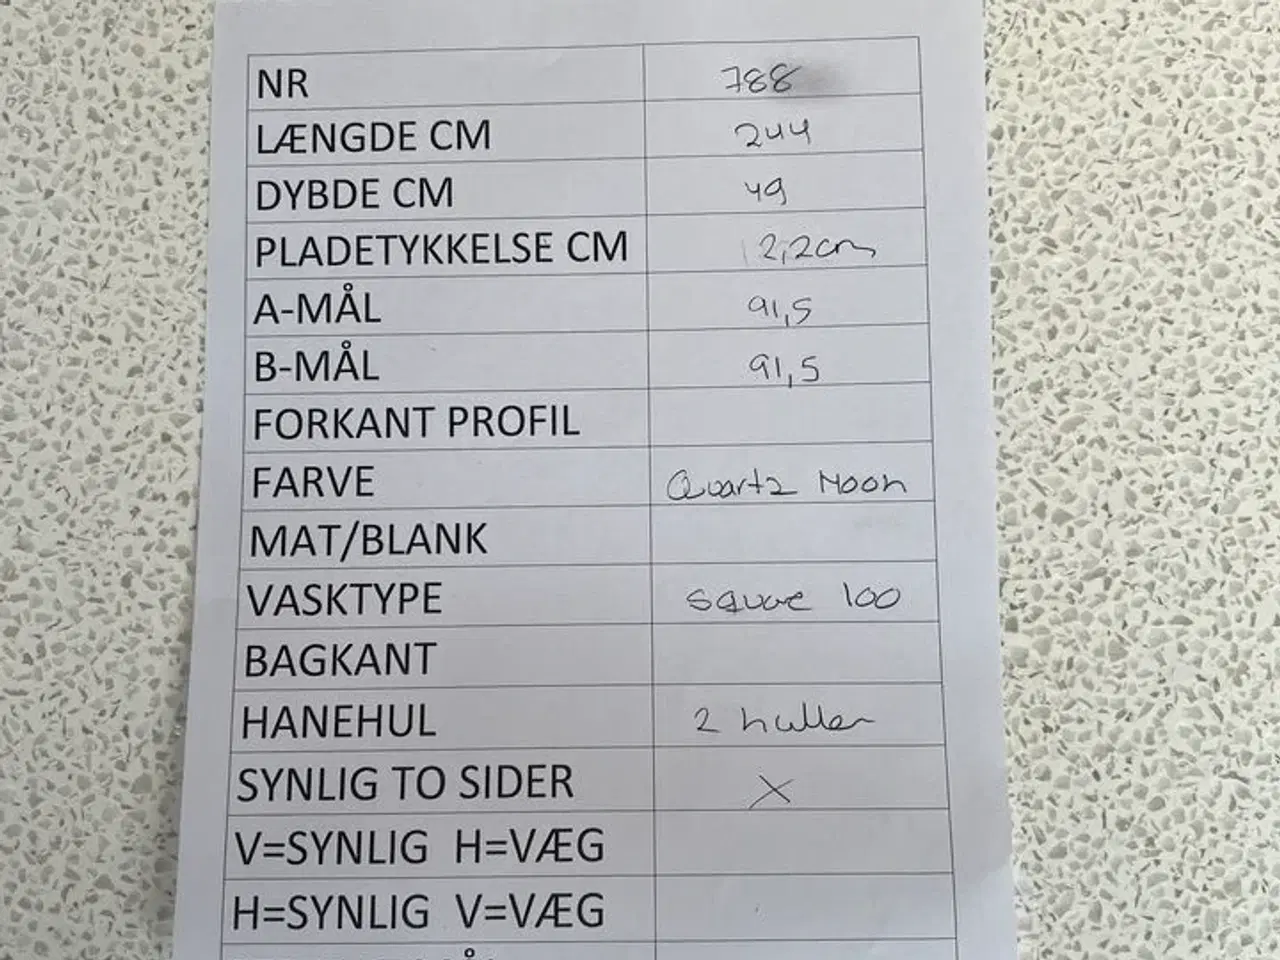 NR 788
LÆNGDE CM 244
DYBDE CM 49
PLADETYKKELSE CM 2,2cm
A-MÅL 91,5
B-MÅL 91,5
FORKANT PROFIL
FARVE Quartz Moon
MAT/BLANK
VASKTYPE Square 100
BAGKANT
HANEHUL 2 huller
SYNLIG TO SIDER X
V=SYNLIG H=VÆG
H=SYNLIG V=VÆG